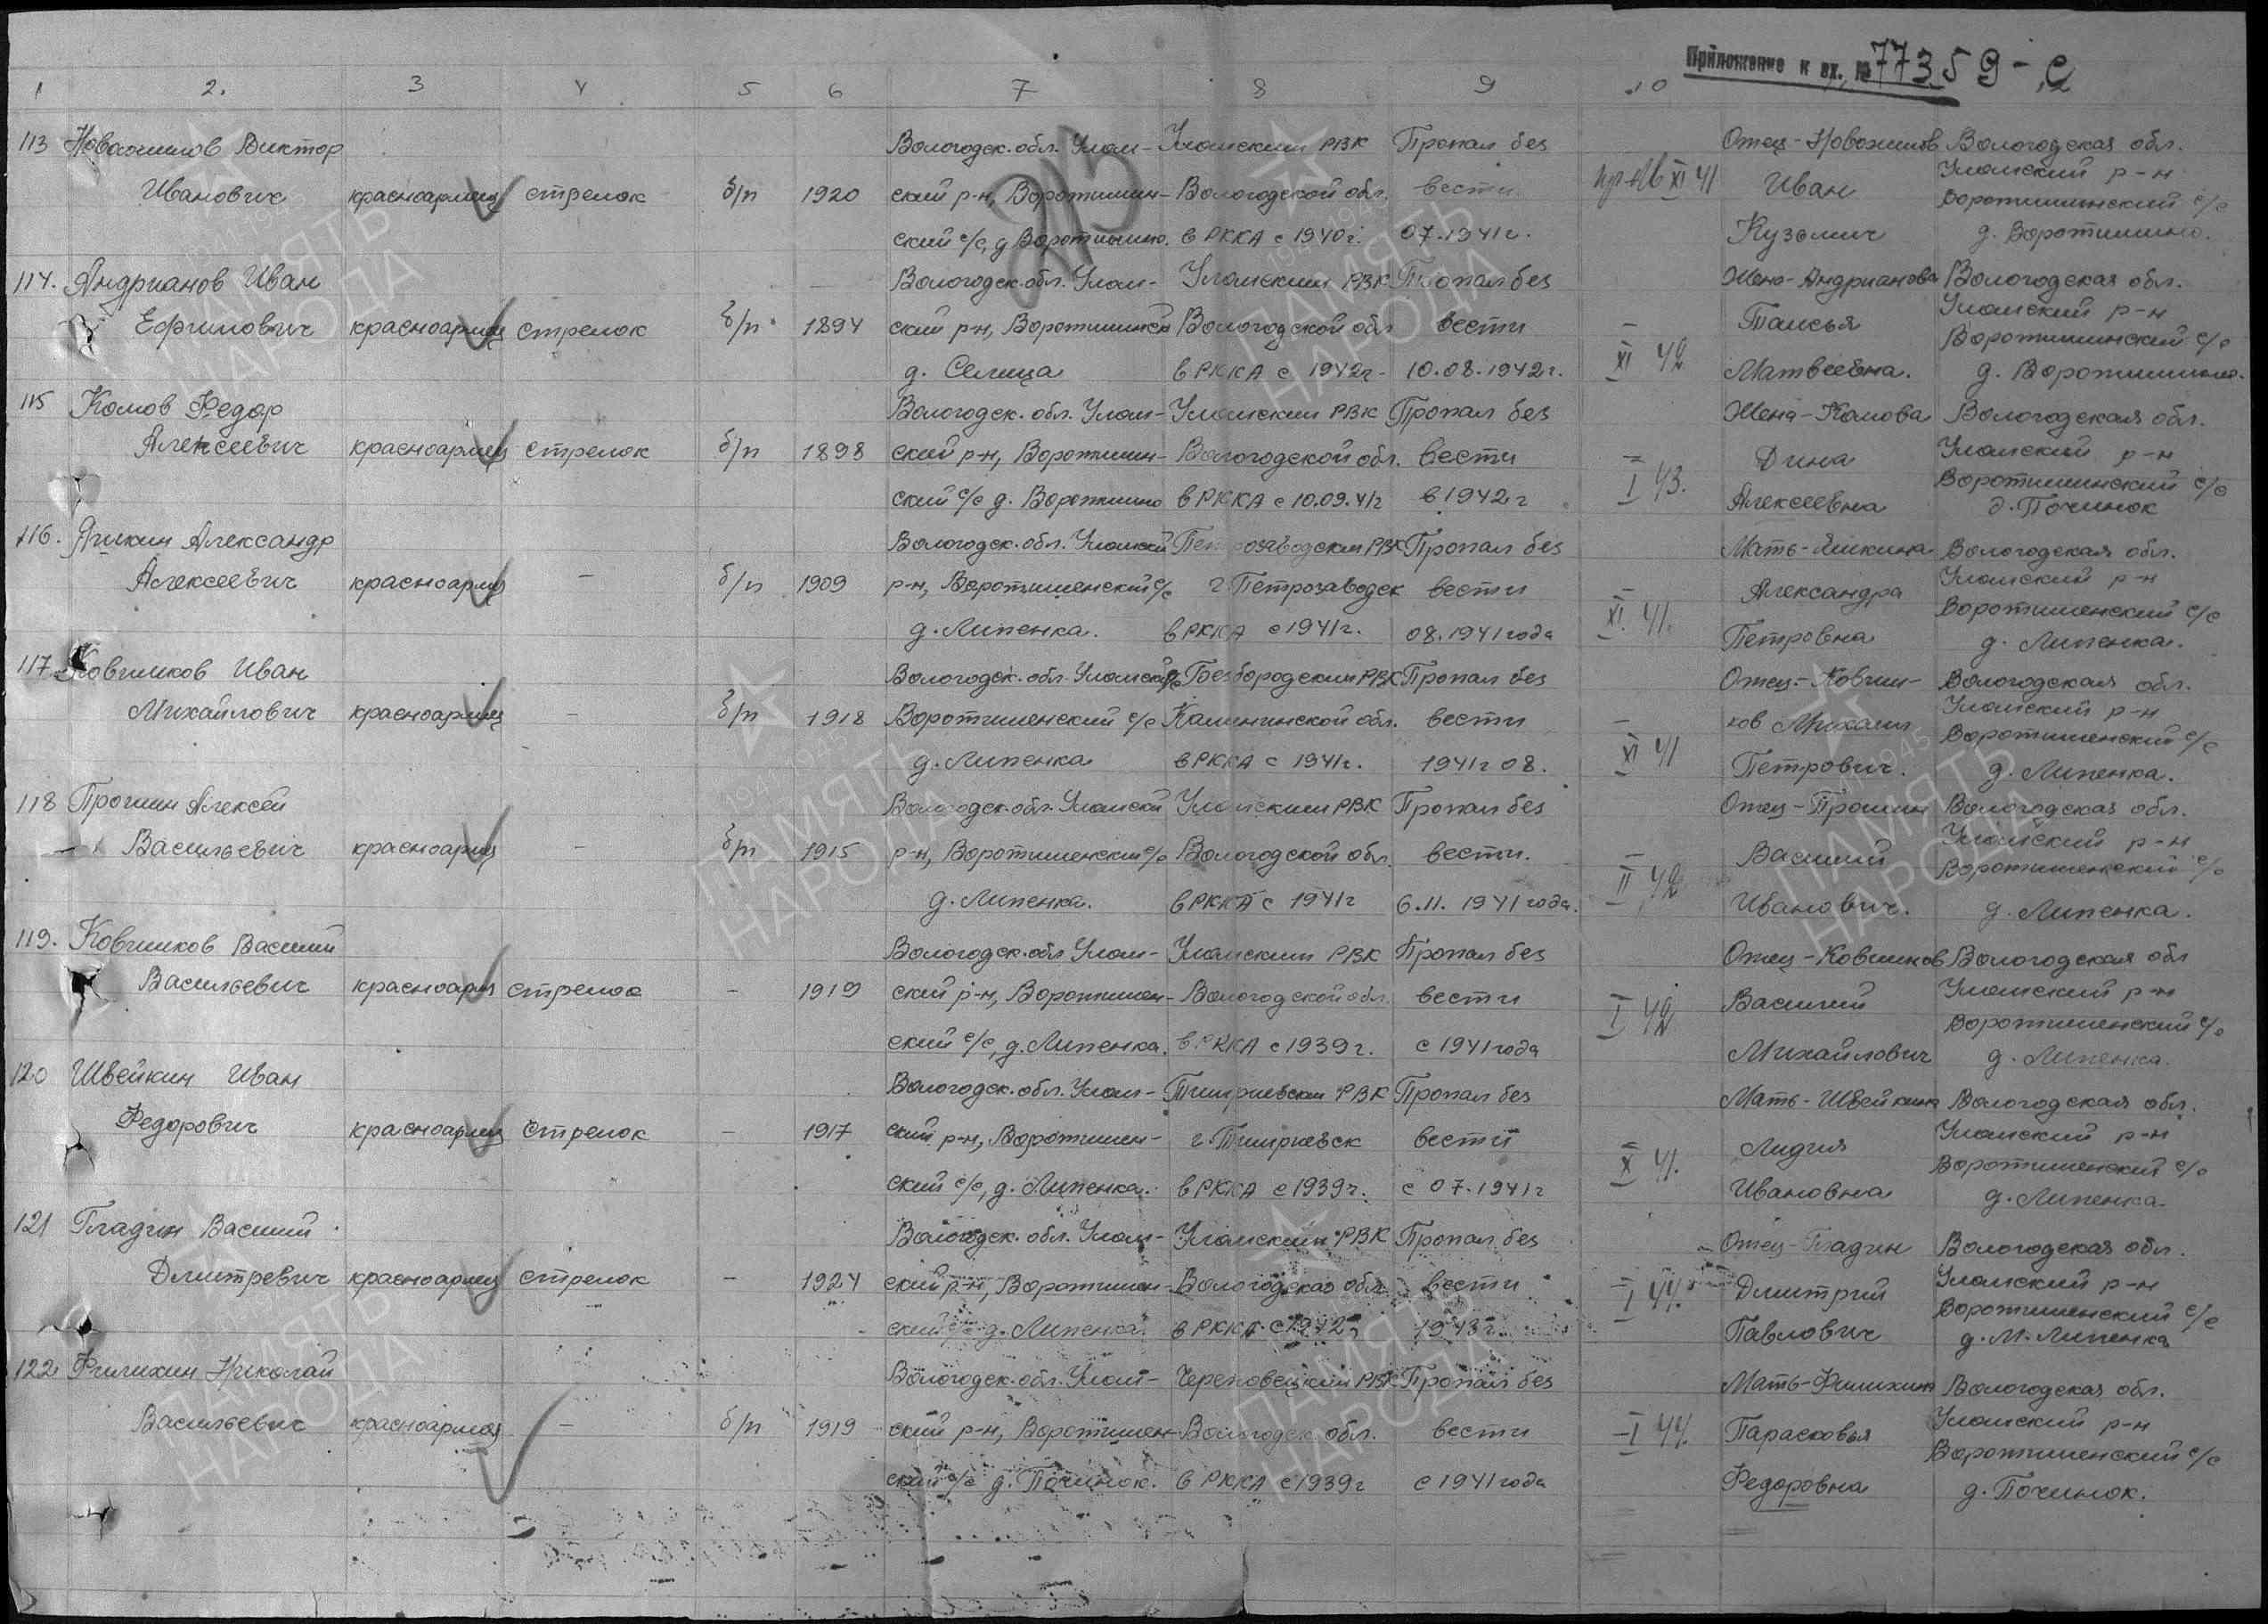 Приложение к вх. № 77359-с
1 2. 3 4 5 6 7 8 9 10
113 Новожилов Виктор Вологодск. обл. Улом- Уломским РВК Пропал без Отец-Новожилов Вологодская обл.
Иванович красноармеец стрелок б/п 1920 ский р-н, Воротишин- Вологодской обл. вести XI 41 Иван Уломский р-н
Воротишинский с/с
ский с/с, д Воротишино. в РККА с 1940г. 07.1941г. Кузьмич д. Воротишино.
114. Андрианов Иван Вологодск. обл. Улом- Уломским РВК Пропал без Жена-Андрианова Вологодская обл.
Ефимович красноармеец стрелок б/п 1894 ский р-н, Воротишинск Вологодской обл вести XI 42 Таисья Уломский р-н
Воротишинский с/с
д. Селища в РККА с 1942г. 10.08.1942г. Матвеевна. д. Воротишино.
115 Комов Федор Вологодск. обл. Улом- Уломским РВК Пропал без Жена-Комова Вологодская обл.
Алексеевич красноармеец стрелок б/п 1898 ский р-н, Воротишин- Вологодской обл. вести I 43. Дина Уломский р-н
Воротишинский с/с
ский с/с д. Воротишино в РККА с 10.09.41г в 1942г Алексеевна д. Починок
116. Яшкин Александр Вологодск. обл. Уломский Петрозаводским РВК Пропал без Мать-Яшкина Вологодская обл.
Алексеевич красноармец - б/п 1909 р-н, Воротишенский с/с г Петрозаводск вести XI. 41. Александра Уломский р-н
Воротишенский с/с
д. Липенка. в РККА с 1941г. 08.1941 года Петровна д. Липенка.
117 Ковшиков Иван Вологодск. обл. Уломский Безбородским РВК Пропал без Отец-Ковши- Вологодская обл.
Михайлович красноармеец - б/п 1918 Воротишенский с/с Калининской обл. вести XI 41 ков Михаил Уломский р-н
Воротишенский с/с
д. Липенка в РККА с 1941г. 1941г 08. Петрович. д. Липенка.
118 Прошин Алексей Вологодск. обл. Уломский Уломским РВК Пропал без Отец-Прошин Вологодская обл.
Васильевич красноармец - б/п 1915 р-н, Воротишенский с/с Вологодской обл. вести. II 42 Василий Уломский р-н
Воротишенский с/с
д. Липенка. в РККА с 1941г 6.11. 1941 года. Иванович. д. Липенка.
119. Ковшиков Василий Вологодск. обл Улом- Уломским РВК Пропал без Отец-Ковшиков Вологодская обл
Васильевич красноарм стрелок - 1919 ский р-н, Воротишен- Вологодской обл. вести I 42 Василий Уломский р-н
Воротишенский с/с
ский с/с, д. Липенка. в РККА с 1939г. с 1941 года Михайлович д. Липенка.
120 Швейкин Иван Вологодск. обл. Улом- Тимриевским РВК Пропал без Мать-Швейкина Вологодская обл.
Федорович красноармеец стрелок - 1917 ский р-н, Воротишен- г. Тимриевск вести X 41. Лидия Уломский р-н
Воротишенский с/с
ский с/с, д. Липенка. в РККА с 1939г. с 07.1941г Ивановна д. Липенка.
121 Гладин Василий Вологодск. обл. Улом- Уломским РВК Пропал без Отец-Гладин Вологодская обл.
Дмитревич красноармеец стрелок - 1924 ский р-н, Воротишен- Вологодская обл. вести I 44. Дмитрий Уломский р-н
Воротишенский с/с
ский с/с д. Липенка. в РККА с 1942г 1943г. Павлович д. М. Липенка
122 Филихин Николай Вологодск. обл. Улом- Череповецким РВК Пропал без Мать-Филихина Вологодская обл.
Васильевич красноармец - б/п 1919 ский р-н, Воротишен- Вологодск. обл. вести I 44. Парасковья Уломский р-н
Воротишенский с/с
ский с/с д. Починок. в РККА с 1939г с 1941 года Федоровна д. Починок.
ПАМЯТЬ
НАРОДА
1941-1945